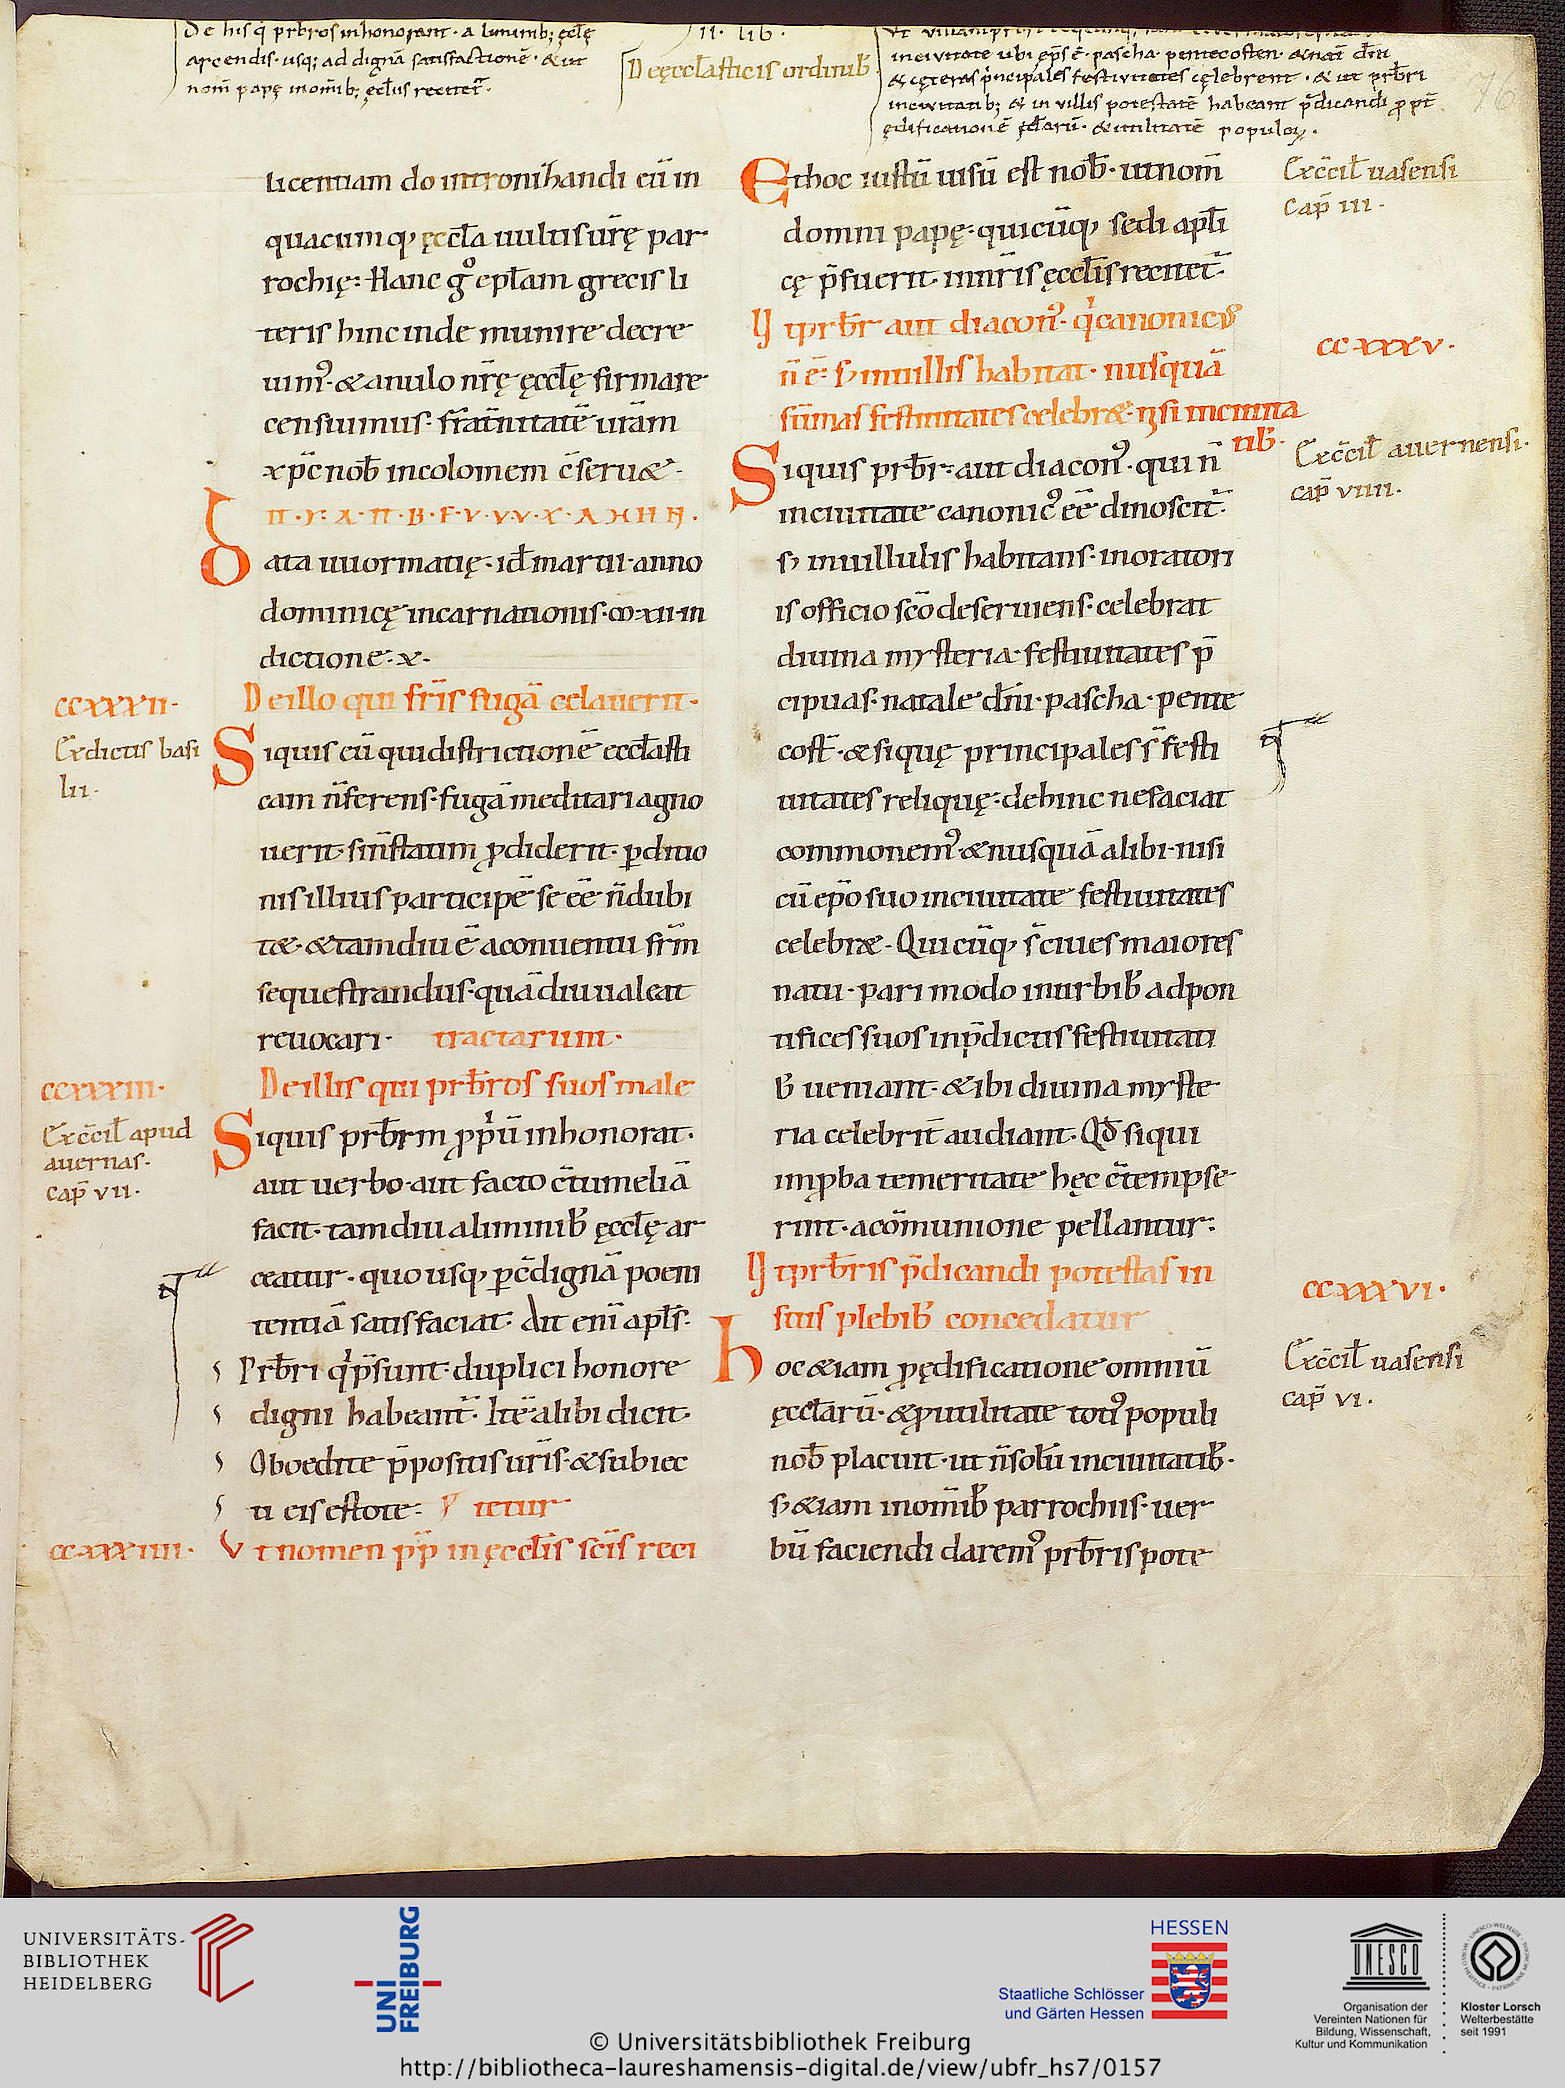 De his q̇ prb̄ros inhonorant · a liminib; ęcl̄ę
arcendis · usq; ad dignā satisfactionē · & ut
nom̄ papę in om̄ib; ęcl̄iis recitet᷑.
II · LIB ·
De ęccl̄asticis ordinib᷒
in ciuitate ubi ep̄s ē · pascha · pentecosten · & nat̄ dn̄i
& cęteras p̄ncipales festiuitates cęlebrent · & ut prb̄ri
in ciuitatib; & in uillis potestatē habeant p̄dicandi ꝓpt̄
ędificationē ęcl̄arū · & utilitatē populoꝝ ·
76
licentiam do intronizandi eū in
quacumq; ęccl̄a uultis ur̄ę par
rochię: Hanc gͦ epl̄am grecis li
teris hinc inde munire decre
uim᷒ · & anulo nr̄ę ęccl̄ę firmare
censuimus · fr̄at̄nitatē urām
xp̄c nob̄ incolomem c̄seruæ ·
Π · Υ · Α · Π · Β · F · V · VV · X · A
Data uuormatię · id̄ martii · anno
dominicę incarnationis · ꝏ · xii · in
dictione · x ·
ccxxxii · De illo qui fr̄is fugā celauerit ·
Ex dictis basi
lii ·
Siquis eū qui districtionē eccl̄asti
cam n̄ ferens · fugā meditari agno
uerit · sin̄ statim ꝓdiderit · ꝑditio
nis illius participē se ēē n̄ dubi
tæ · & tamdiu ē a conuentu fr̄m
sequestrandus · quādiu ualeat
reuocari · tractarum ·
ccxxxiii · De illis qui prb̄ros suos male
Ex c̄cil̄ apud
auernas ·
cap̄ vii ·
Siquis prb̄rm ꝓp̄ū inhonorat ·
aut uerbo · aut facto c̄tumeliā
facit · tamdiu a liminib᷒ ęccl̄ę ar
ceatur · quo usq; ꝑ c̄dignā poeni
tentiā satisfaciat · Ait eni᷒ apl̄s ·
Prb̄ri q̇ p̄sunt · duplici honore
digni habeant᷑ · Itē alibi dicit
Oboedite p̄positis ur̄is · & subiec
ti eis estote · tetur
ccxxxiiii · Vt nomen pp̄ in ęccl̄is sc̄is reci
Et hoc iustū uisū est nob̄ · ut nom̄
domni papę · quicūq; sedi apl̄i
cę p̄fuerit · in nr̄is ęccl̄is recitet᷑ ·
Ex c̄cil̄ uasensi
cap̄ iii ·
Vt prb̄r aut diacon᷒ · q̇ canonic᷒
n̄ ē · s; in uillis habitat · nusquā
sūmas festiuitates celebræ · n̄si in ciuita
tib᷒ ·
ccxxxv ·
Ex c̄cil̄ auernensi ·
cap̄ viiii ·
Siquis prb̄r · aut diacon᷒ · qui n̄
in ciuitate canonic᷒ ēē dinoscit᷑ ·
s; in uillulis habitans · in oratori
is officio sc̄o deseruiens · celebrat
diuina mysteria · festiuitates p̄
cipuas · natale dn̄i · pascha · pente
cost̄ · & siquę principales s̄ festi
uitates reliquę · dehinc ne faciat
commonem᷒ · & nusquā alibi · nisi
cū ep̄o suo in ciuitate festiuitates
celebræ · Quicūq; s̄ ciues maiores
natu · pari modo in urbib᷒ ad pon
tifices suos in p̄dictis festiuitati
b᷒ ueniant · & ibi diuina myste
ria celebrit̄ audiant · Qd̄ siqui
imꝓba temeritate hęc c̄tempse
rint · a cōmunione pellantur:
Vt prb̄ris p̄dicandi potestas in
suis plebib᷒ concedatur
ccxxxvi ·
Ex c̄cil̄ uasensi
cap̄ vi ·
Hoc &iam ꝓ ędificatione omniū
ęccl̄arū · & ꝓ utilitate toti᷒ populi
nob̄ placuit · ut n̄ solū in ciuitatib᷒ ·
s; &iam in om̄ib᷒ parrochiis · uer
bū faciendi darem᷒ prb̄ris pote
UNIVERSITÄTS-
BIBLIOTHEK
HEIDELBERG
UNI
FREIBURG
HESSEN
Staatliche Schlösser
und Gärten Hessen
UNESCO
Organisation der
Vereinten Nationen für
Bildung, Wissenschaft,
Kultur und Kommunikation
Kloster Lorsch
Welterbestätte
seit 1991
© Universitätsbibliothek Freiburg
http://bibliotheca-laureshamensis-digital.de/view/ubfr_hs7/0157